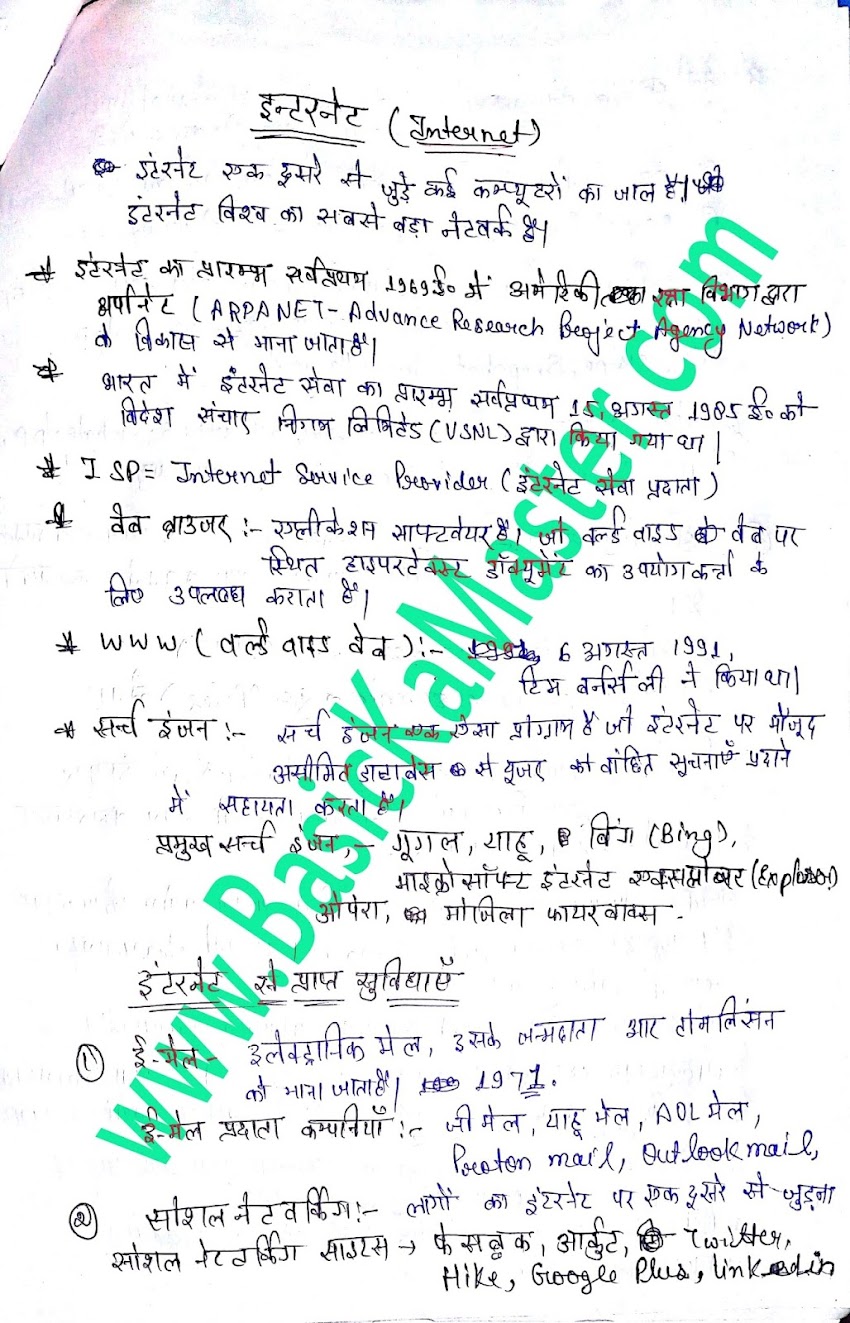 इन्टरनेट (Internet)
इंटरनेट एक दूसरे से जुड़े कई कम्प्यूटरों का जाल है।
इंटरनेट विश्व का सबसे बड़ा नेटवर्क है।
* इंटरनेट का प्रारम्भ सर्वप्रथम 1969 ई० में अमेरिकी रक्षा विभाग द्वारा
अर्पानेट (ARPANET- Advance Research Project Agency Network)
के विकास से माना जाता है।
* भारत में इंटरनेट सेवा का प्रारम्भ सर्वप्रथम 15, अगस्त 1985 ई० को
विदेश संचार निगम लिमिटेड (VSNL) द्वारा किया गया था |
* ISP = Internet Service Provider (इंटरनेट सेवा प्रदाता)
* वेब ब्राउजर :- एप्लीकेशन साफ्टवेयर है। जो वर्ल्ड वाइड वेब पर
स्थित हाइपरटेक्स्ट डॉक्यूमेंट का उपयोगकर्त्ता के
लिए उपलब्ध कराता है।
* WWW (वर्ल्ड वाइड वेब) :- 6 अगस्त 1991,
टिम बर्नर्स ली ने किया था|
* सर्च इंजन :- सर्च इंजन एक ऐसा प्रोग्राम है जो इंटरनेट पर मौजूद
असीमित डाटाबेस से यूजर को वांछित सूचनाएँ प्रदाने
में सहायता करता है।
प्रमुख सर्च इंजन,- गूगल, याहू, बिंग (Bing),
माइक्रोसॉफ्ट इंटरनेट एक्सप्लोरर (Explorer)
ओपेरा, मोजिला फायरवाक्स -
इंटरनेट से प्राप्त सुविधाएँ
① ई-मेल - इलेक्ट्रानिक मेल, इसके जन्मदाता आर टोमलिंसन
को माना जाता है। 1971.
ई-मेल प्रदाता कम्पनियाँ :- जी मेल, याहू मेल, AOL मेल,
Proton mail, Outlook mail,
② सोशल नेटवर्किंग :- लोगों का इंटरनेट पर एक दूसरे से जुड़ना
सोशल नेटवर्किंग साइट्स → फेसबुक, आर्कुट, Twitter,
Hike, Google Plus, linkedin
www.BasicKaMaster.com